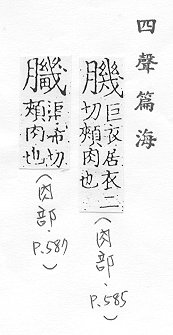 四聲篇海
巨衣居衣二
切頰肉也
(肉部.P.585)
渠希切
頰肉也
(肉部.P.587)